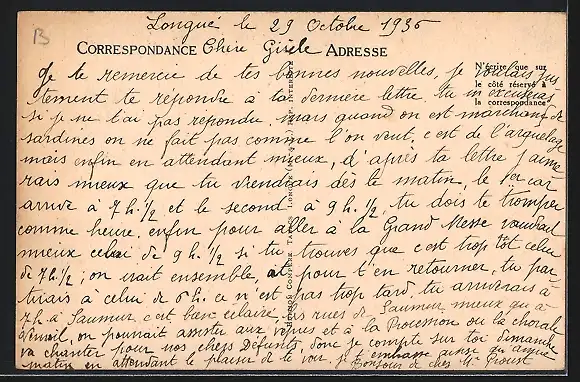 B
Longué le 29 Octobre 1936
CORRESPONDANCE Chère Gisèle ADRESSE
N'écrire que sur
le côté réservé à
la correspondance
Je te remercie de tes bonnes nouvelles, je voulais jus
tement te répondre à ta dernière lettre, tu m'excuseras
si je ne t'ai pas répondu, mais quand on est marchand de
sardines on ne fait pas comme l'on veut, c'est de l'
mais enfin en attendant mieux, d'après ta lettre j'aime
rais mieux que tu viendrais dès le matin, le 1er car
arrive à 7h.1/2 et le second à 9h.1/2, tu dois te tromper
comme heure, enfin pour aller à la Grand Messe vaudrait
mieux celui de 9h.1/2 si tu trouves que c'est trop tôt celui
de 7h.1/2; on irait ensemble, et pour t'en retourner, tu par
tirais à celui de 6h. ce n'est pas trop tard, tu arriverais à
7h. à Saumur, c'est bien éclairé, les rues de Saumur mieux qu'à
on pourrait assister aux vêpres et à la Procession ou la chorale
va chanter pour nos chers Défunts, donc je compte sur toi dimanche
matin en attendant le plaisir de te voir, je t'embrasse ainsi qu'
Bonjours de chez Mr Proust